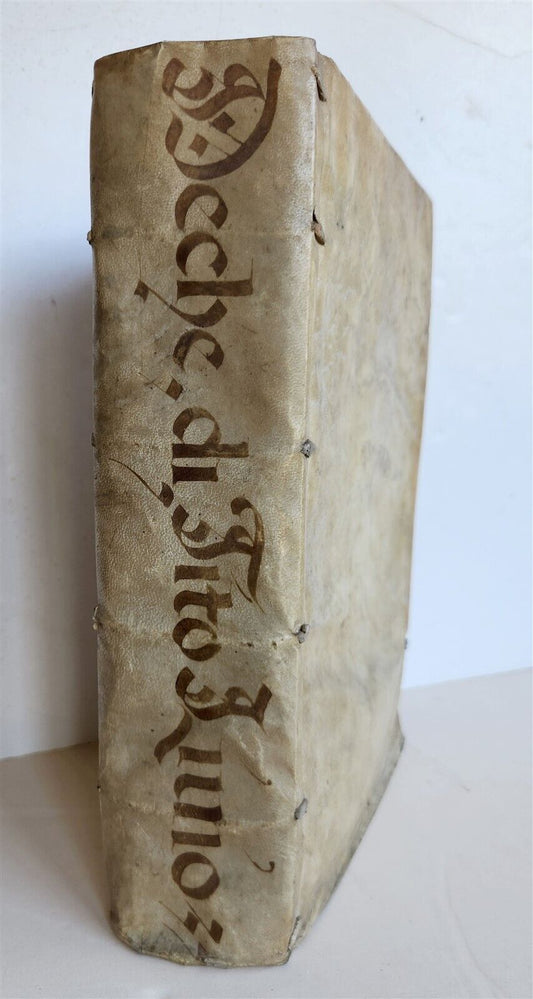 Deche. di. Tito Liuio